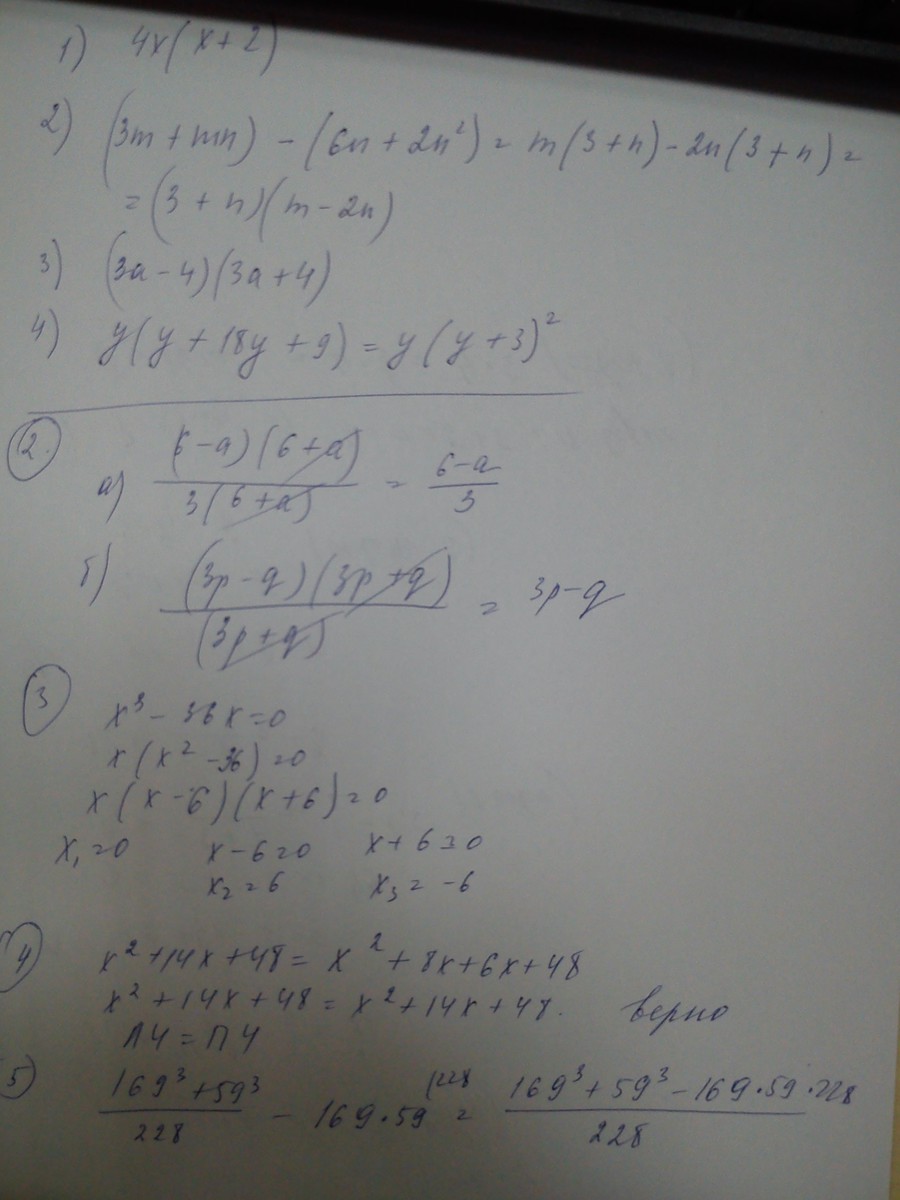 1) 4x(x+2)
2) (3m + mn) - (6n + 2n²) = m(3+n) - 2n(3+n) =
= (3+n)(m-2n)
3) (3a-4)(3a+4)
4) y(y + 18y + 9) = y(y+3)²
2. а) (6-a)(6+a) / 3(6+a) = 6-a / 3
б) (3p-q)(3p+q) / (3p+q) = 3p-q
3 x³ - 36x = 0
x(x² - 36) = 0
x(x-6)(x+6) = 0
x₁ = 0 x-6=0 x+6=0
x₂ = 6 x₃ = -6
4) x² + 14x + 48 = x² + 8x + 6x + 48
x² + 14x + 48 = x² + 14x + 48. верно
ЛЧ = ПЧ
5) 169³ + 59³ / 228 - 169·59 /228 = 169³ + 59³ - 169·59·228 / 228